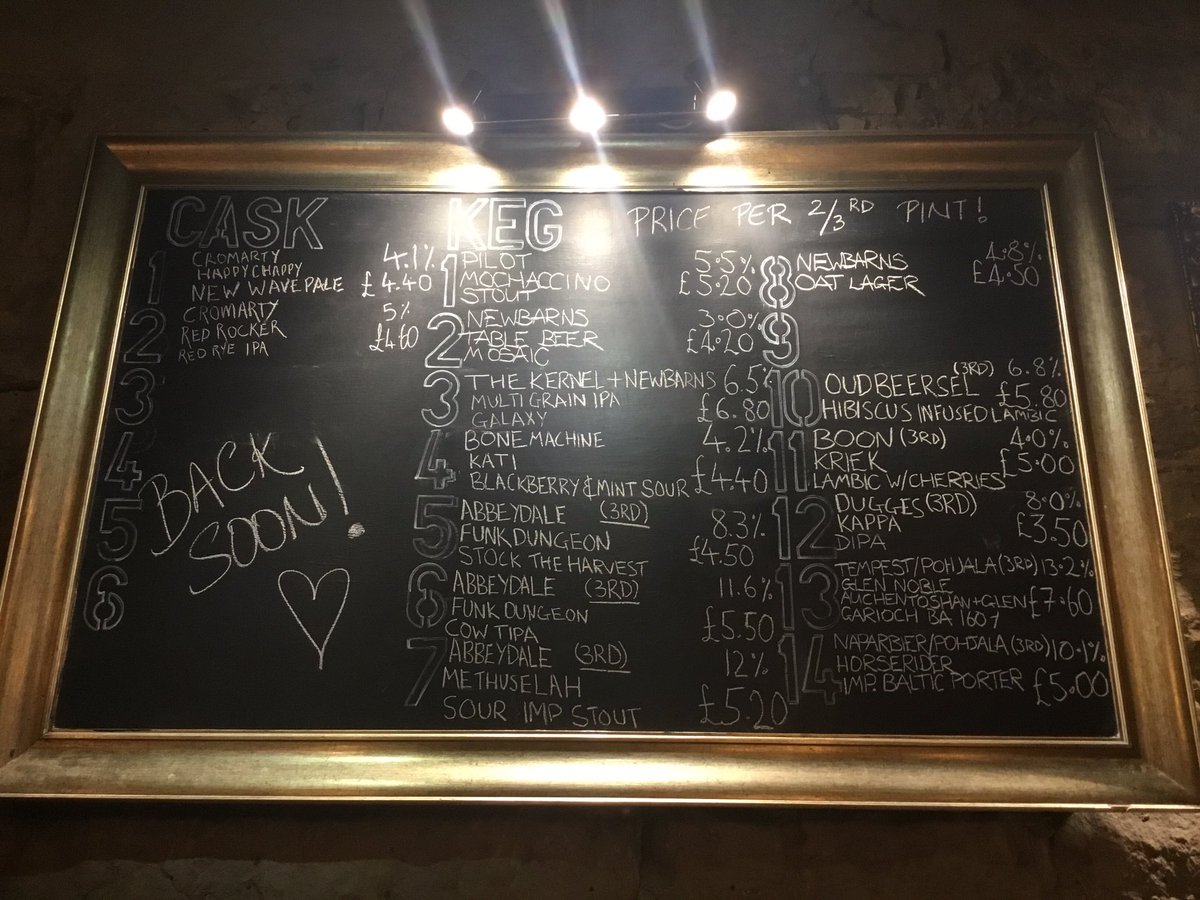 CASK
1 CROMARTY 4.1%
HAPPY CHAPPY
NEW WAVE PALE £4.40
2 CROMARTY 5%
RED ROCKER £4.60
RED RYE IPA
3
4
5
6
BACK
SOON!
KEG PRICE PER 2/3RD PINT!
1 PILOT 5.5%
MOCHACCINO £5.20
STOUT
2 NEWBARNS 3.0%
TABLE BEER £4.20
MOSAIC
3 THE KERNEL + NEWBARNS 6.5%
MULTI GRAIN IPA £6.80
GALAXY
4 BONE MACHINE 4.2%
KATI
BLACKBERRY & MINT SOUR £4.40
5 ABBEYDALE (3RD) 8.3%
FUNK DUNGEON £4.50
STOCK THE HARVEST
6 ABBEYDALE (3RD) 11.6%
FUNK DUNGEON £5.50
COW TIPA
7 ABBEYDALE (3RD) 12%
METHUSELAH £5.20
SOUR IMP STOUT
8 NEWBARNS 4.8%
OAT LAGER £4.50
9
10 (3RD) 6.8%
OUDBEERSEL £5.80
HIBISCUS INFUSED LAMBIC
11 BOON (3RD) 4.0%
KRIEK £5.00
LAMBIC W/CHERRIES
12 DUGGES (3RD) 8.0%
KAPPA £3.50
DIPA
13 TEMPEST/POHJALA (3RD) 13.2%
GLEN NOBLE
AUCHENTOSHAN + GLEN £7.60
GARIOCH BA 1607
14 NAPARBIER/POHJALA (3RD) 10.1%
HORSERIDER
IMP. BALTIC PORTER £5.00